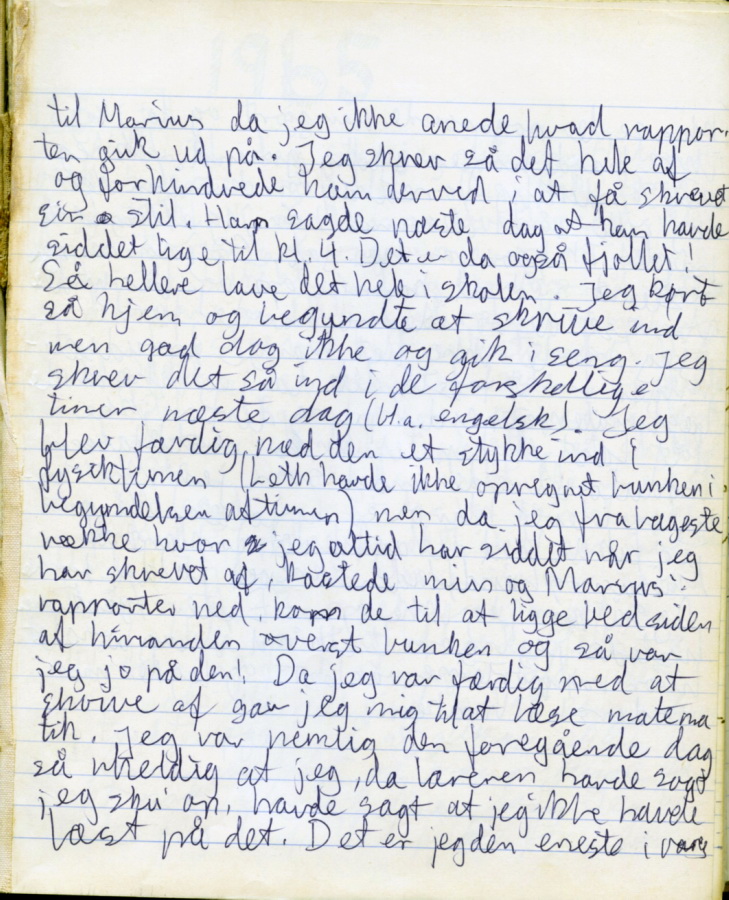 til Marius da jeg ikke anede hvad rappor-
ten gik ud på. Jeg skrev så det hele af
og forhindrede ham derved i at få skrevet
sin stil. Han sagde næste dag at han havde
siddet lige til kl. 4. Det er da også fjollet!
Så hellere lave det hele i skolen. Jeg kørt
så hjem og begyndte at skrive ind
men gad dog ikke og gik i seng. Jeg
skrev det så ind i de forskellige
timer næste dag (bl.a. engelsk). Jeg
blev færdig med den et stykke ind i
fysiktimen (Leth havde ikke opregnet bunken i
begyndelsen af timen) men da jeg fra bageste
række hvor jeg altid har siddet når jeg
har skrevet af, kastede min og Marius'
rapporter ned, kom de til at ligge ved siden
af hinanden øverst bunken og så var
jeg jo på den! Da jeg var færdig med at
skrive af gav jeg mig til at læse matema-
tik. Jeg var nemlig den foregående dag
så uheldig at jeg, da læreren havde sagt
jeg sku' op, havde sagt at jeg ikke havde
læst på det. Det er jeg den eneste i vores